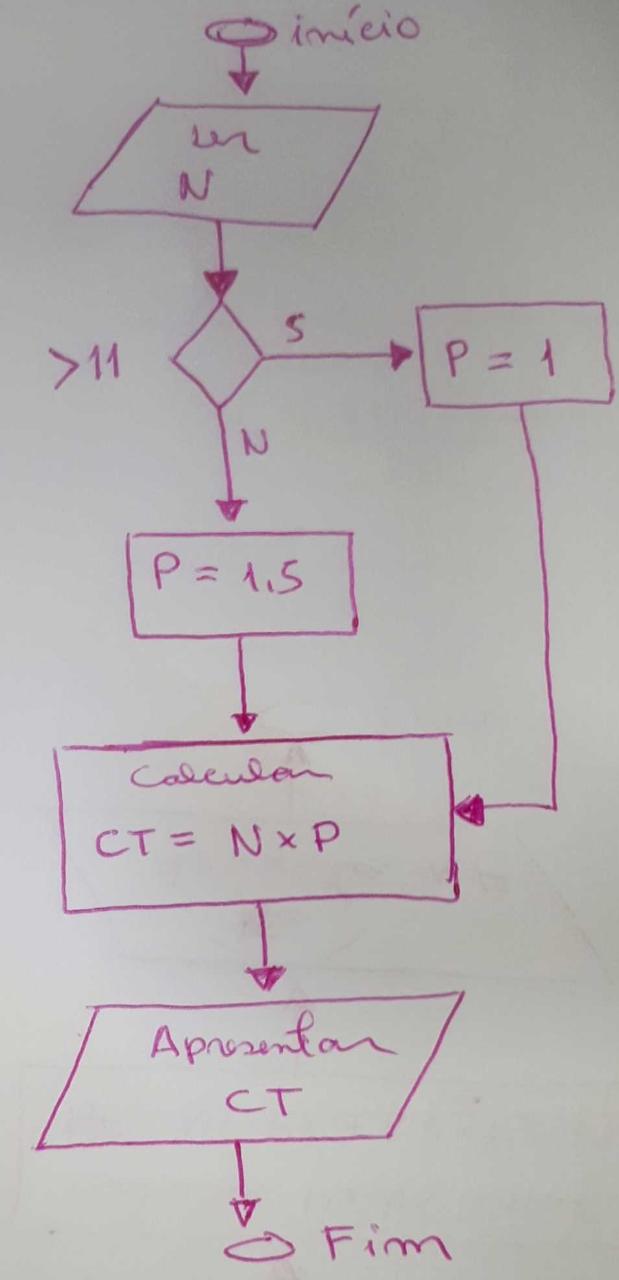 início
Ler
N
>11
S
P = 1
N
P = 1.5
Calcular
CT = N x P
Apresentar
CT
Fim